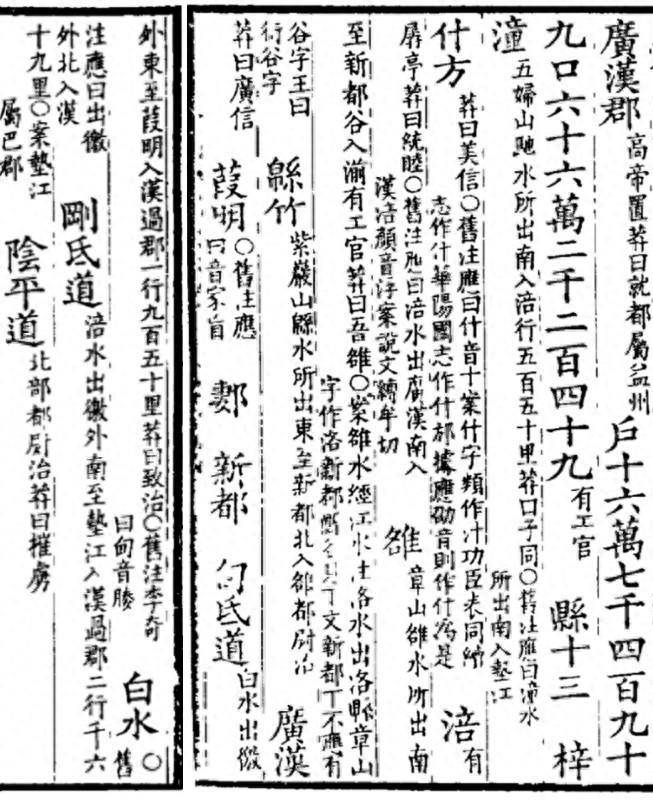 廣漢郡 高帝置莽曰就都屬益州 戶十六萬七千四百九十
九口六十六萬二千二百四十九 有工官 縣十三 梓
潼 五婦山馳水所出南入涪行五百五十里莽曰子同〇舊注應曰潼水
所出南入墊江
什方 莽曰美信〇舊注應曰什音十案什字類作汁功臣表同
志作什華陽國志作什邡據應劭音則作什為是
涪 有
孱亭莽曰統睦〇舊注應曰涪水出廣漢南入
漢涪顏音浮案說文縛牟切
雒 章山雒水所出南
至新都谷入湔有工官莽曰吾雒〇案雒水經江水注洛水出洛縣章山
字作洛新都文新都下不應有
谷字王曰
衍谷字
緜竹 紫巖山緜水所出東至新都北入雒都尉治 廣漢
莽曰廣信 葭明 〇舊注應
曰音家盲
郪 新都 甸氐道 白水出徼
外東至葭明入漢過郡一行九百五十里莽曰致治〇舊注李奇
曰甸音媵
白水 〇舊
注應曰出徼
外北入漢
剛氐道 涪水出徼外南至墊江入漢過郡二行千六
十九里〇案墊江
屬巴郡
陰平道 北部都尉治莽曰摧虜